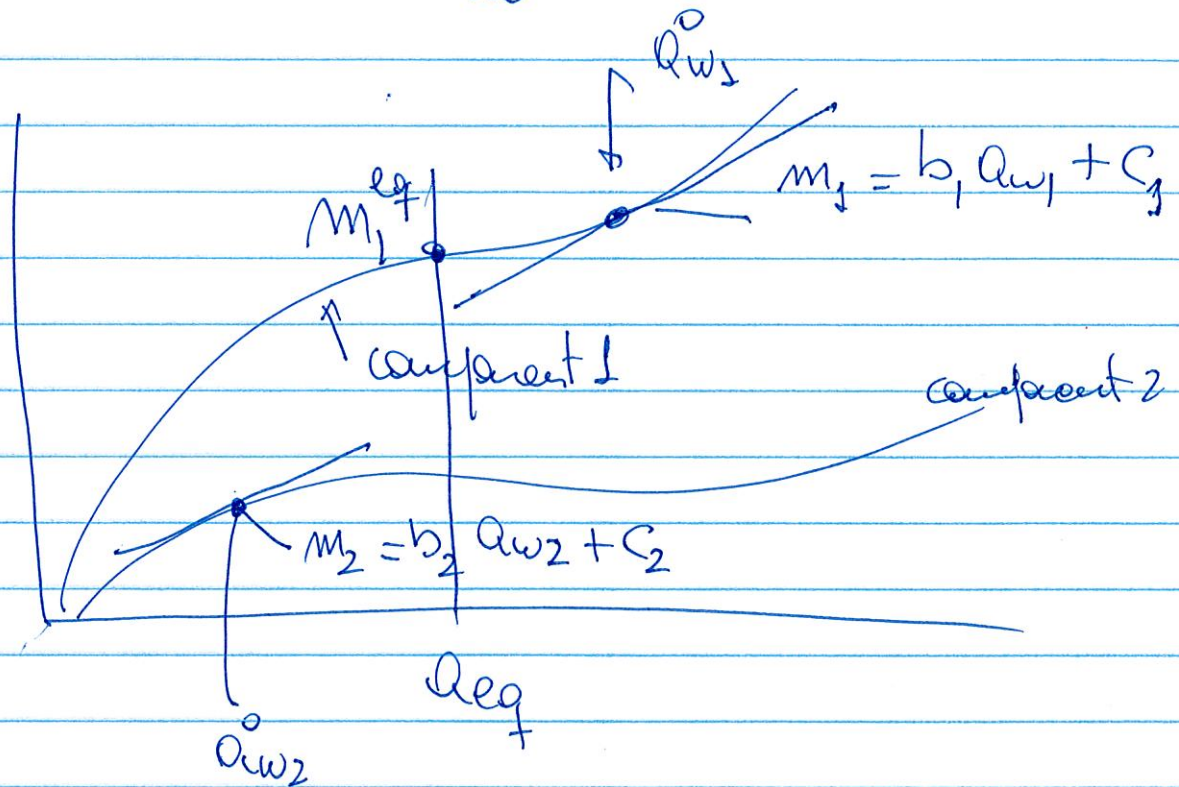 aw1°
m1 = b1 aw1 + c1
m1eq
component 1
component 2
m2 = b2 aw2 + c2
aeq
aw2°